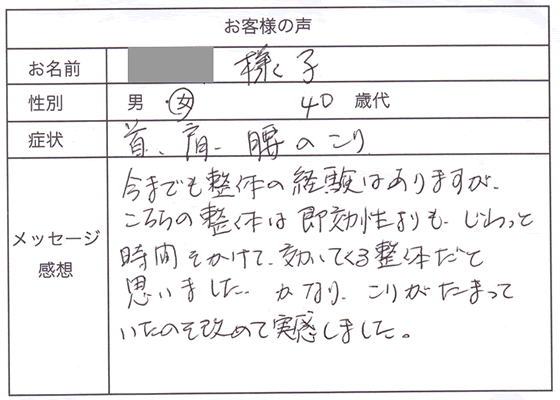 お客様の声
お名前 様子
性別 男・女 40 歳代
症状 首、肩、腰のこり
メッセージ
感想
今までも整体の経験はありますが、
こちらの整体は即効性よりも、じわっと
時間をかけて、効いてくる整体だと
思いました。かなり、こりがたまって
いたのを改めて実感しました。